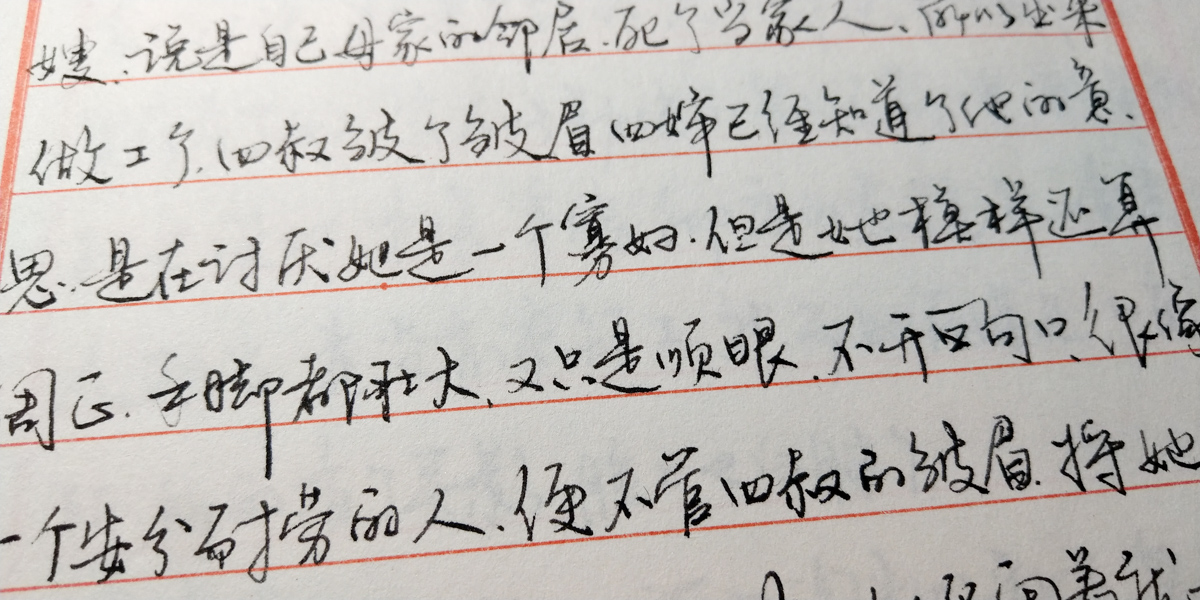 嫂,说是自己母家的邻居,死了当家人,所以出来
做工了,四叔皱了皱眉四婶已经知道了他的意,
思,是在讨厌她是一个寡妇,但是她模样还算
周正,手脚都壮大,又只是顺眼,不开口句口,很像
一个安分耐劳的人,便不管四叔的皱眉,将她